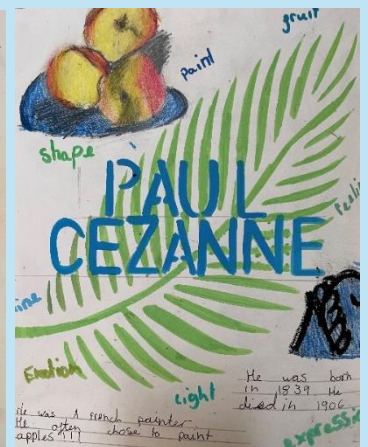 gruit
paint
shape
PAUL
CEZANNE
ine
Emotion
Light
He was born
in 1839 He
died in 1906.
He was A French painter
He often chose to paint
apples!!!
expressi